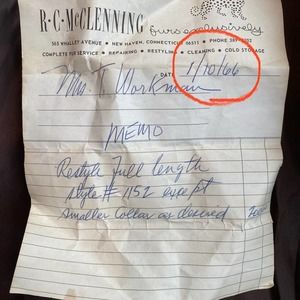 R·C·McCLENNING
furs exclusively
505 WHALLEY AVENUE • NEW HAVEN, CONNECTICUT 06511 • PHONE
COMPLETE FUR SERVICE • REPAIRING • RESTYLING • CLEANING • COLD STORAGE
DATE 1/10/66
Mrs. T. Workman
MEMO
Restyle Full length
style # 1152 except
smaller collar as desired